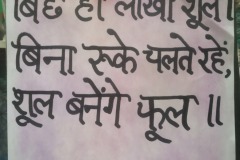 बिछे हों लाखों शूल।
बिना रूके चलते रहें,
शूल बनेंगे फूल ॥